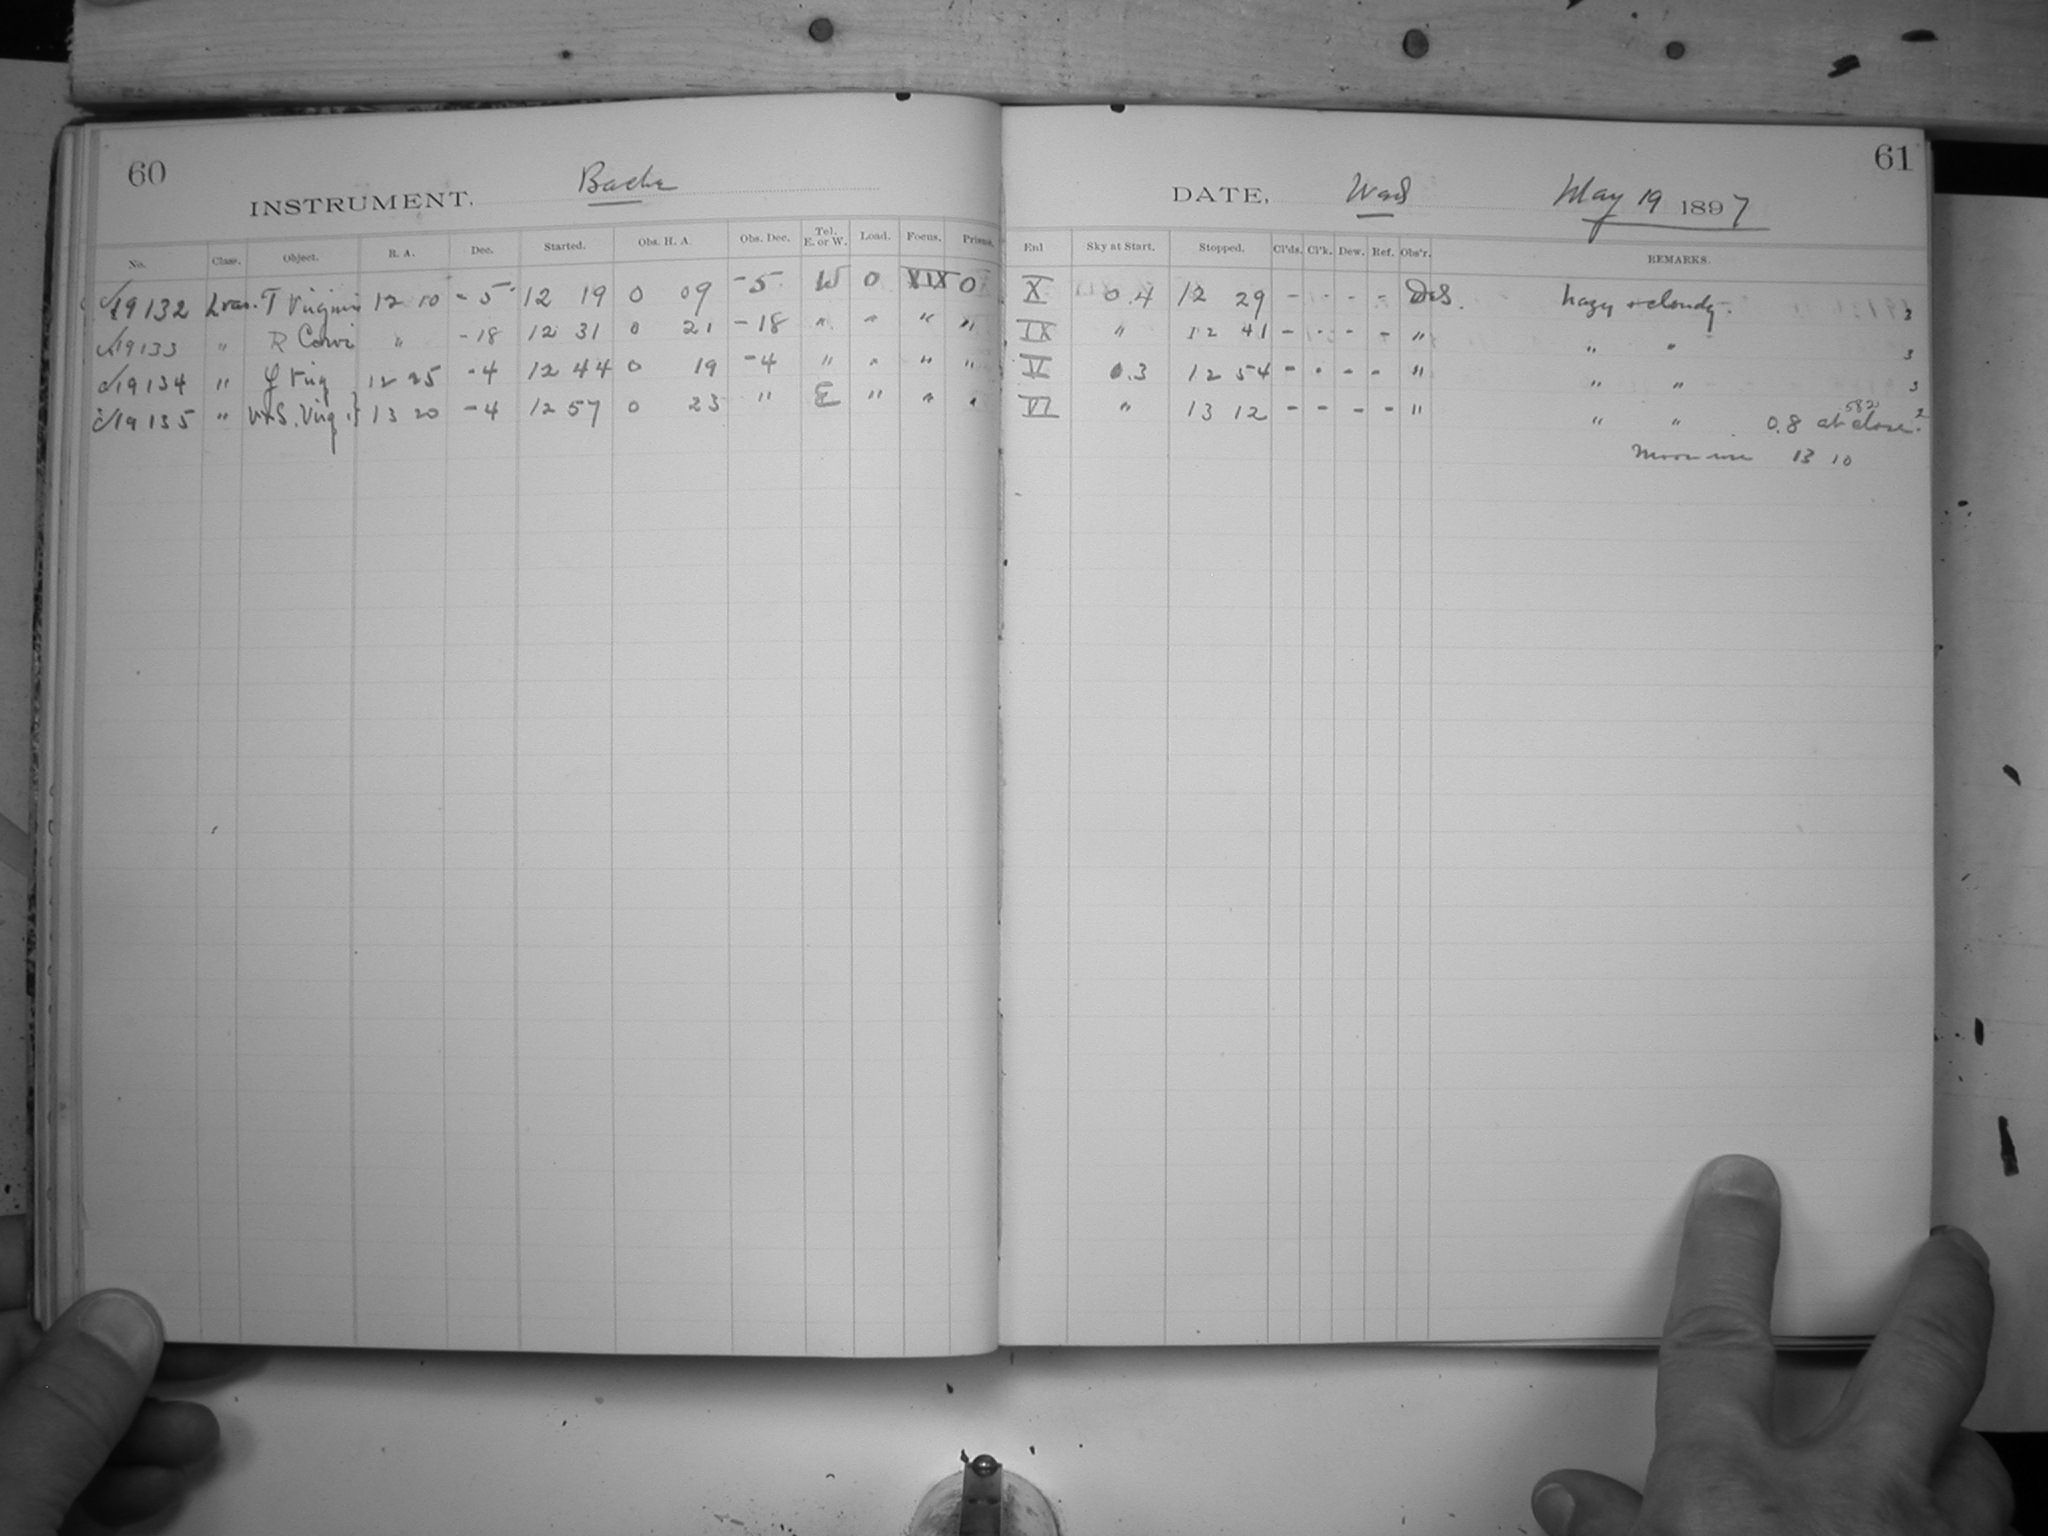 60
INSTRUMENT, Bache
No. Class. Object. R. A. Dec. Started. Obs. H. A. Obs. Dec. Tel. E. or W. Load. Focus. Prisms.
19132 L var. T Virginis 12 10 - 5 12 19 0 09 - 5 W 0 XIX 0
19133 " R Corvi " - 18 12 31 0 21 - 18 " " " "
19134 " Y Virg 12 25 - 4 12 44 0 19 - 4 " " " "
19135 " W+S. Virg. 13 20 - 4 12 57 0 23 " E " " "
61
DATE, Wed May 19 1897
Enl Sky at Start. Stopped. Cl'ds. Cl'k. Dew. Ref. Obs'r. REMARKS.
X 0.4 12 29 - - - - DeS. hazy & cloudy. 3
IX " 12 41 - - - - " " " 3
V 0.3 12 54 - - - - " " " 3
VI " 13 12 - - - - " " " 0.8 at close. 582 2
Moon rise 13 10